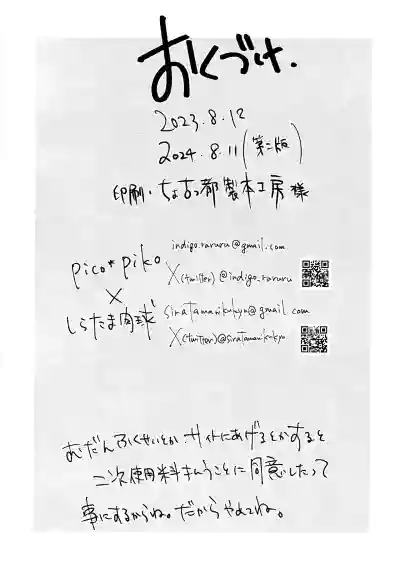 おくづけ.
2023.8.12
2024.8.11(第二版)
印刷・ちょ古っ都製本工房 様
pico*piko
×
しらたま肉球
indigo.raruru@gmail.com
X(twitter)@indigo_raruru
siratamanikukyu@gmail.com
X(twitter)@siratamanikukyo
むだんふくせいとか サイトにあげるとかすると
二次使用料払うことに同意したって
事にするからね。だからやめてね。